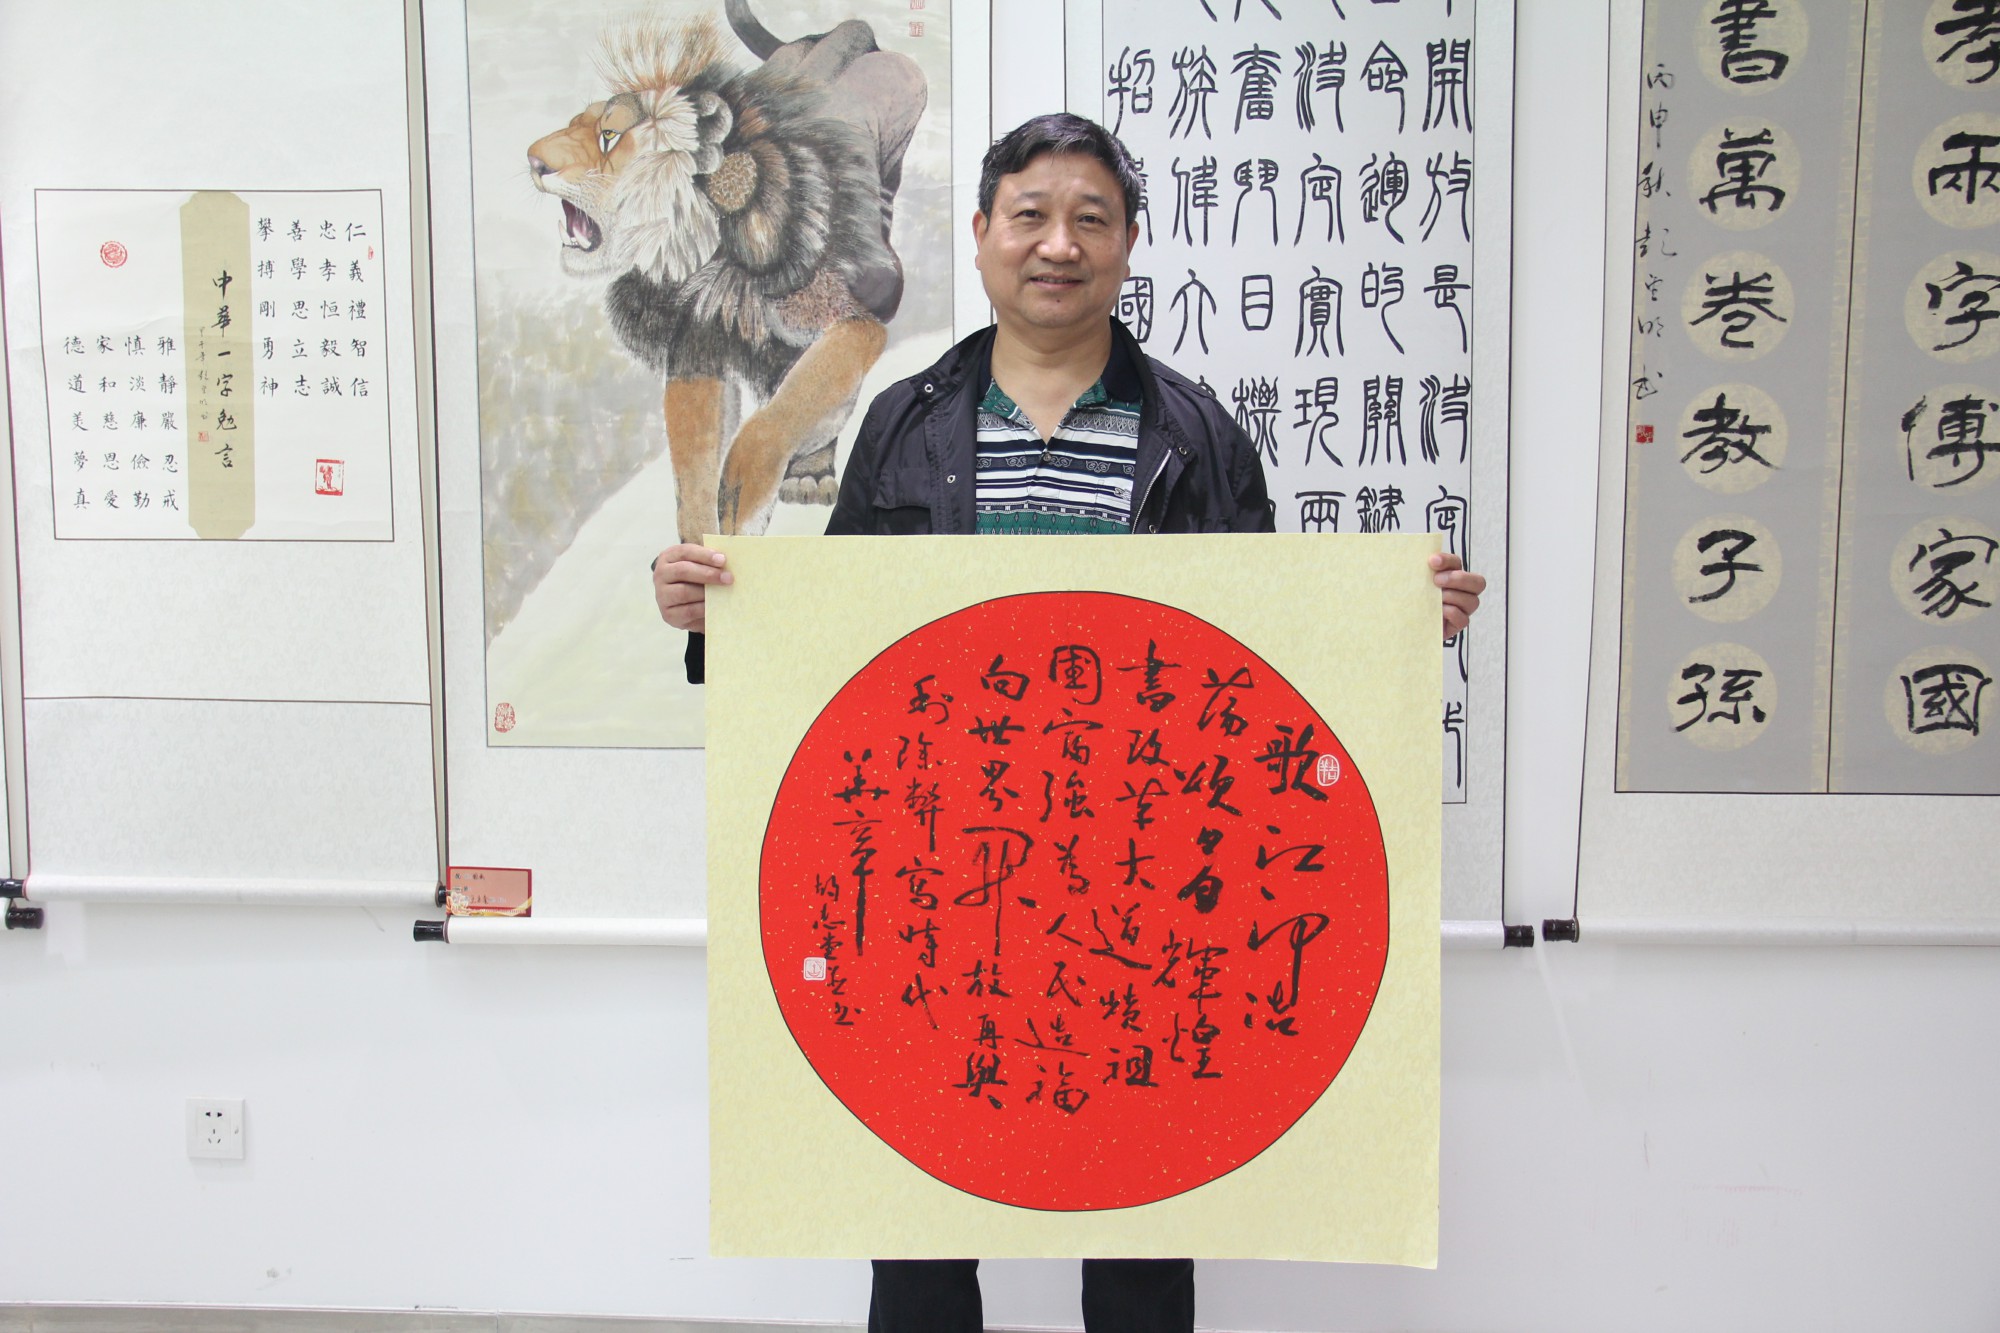 仁義禮智信
忠孝恒毅誠
善學思立志
攀搏剛勇神
中華一字勉言
雅靜嚴忍戒
慎淡廉儉勤
家和慈恩愛
德道美夢真
開放是決定
命運的關鍵
決定實現兩
奮鬥目標
族偉大
招 國
孝兩字傳家國
書萬卷教子孫
丙申秋
歌江河浩
蕩頌 輝煌
書改革大道 祖
國富強為人民造福
向世界開放再興
利除弊寫時代
華章